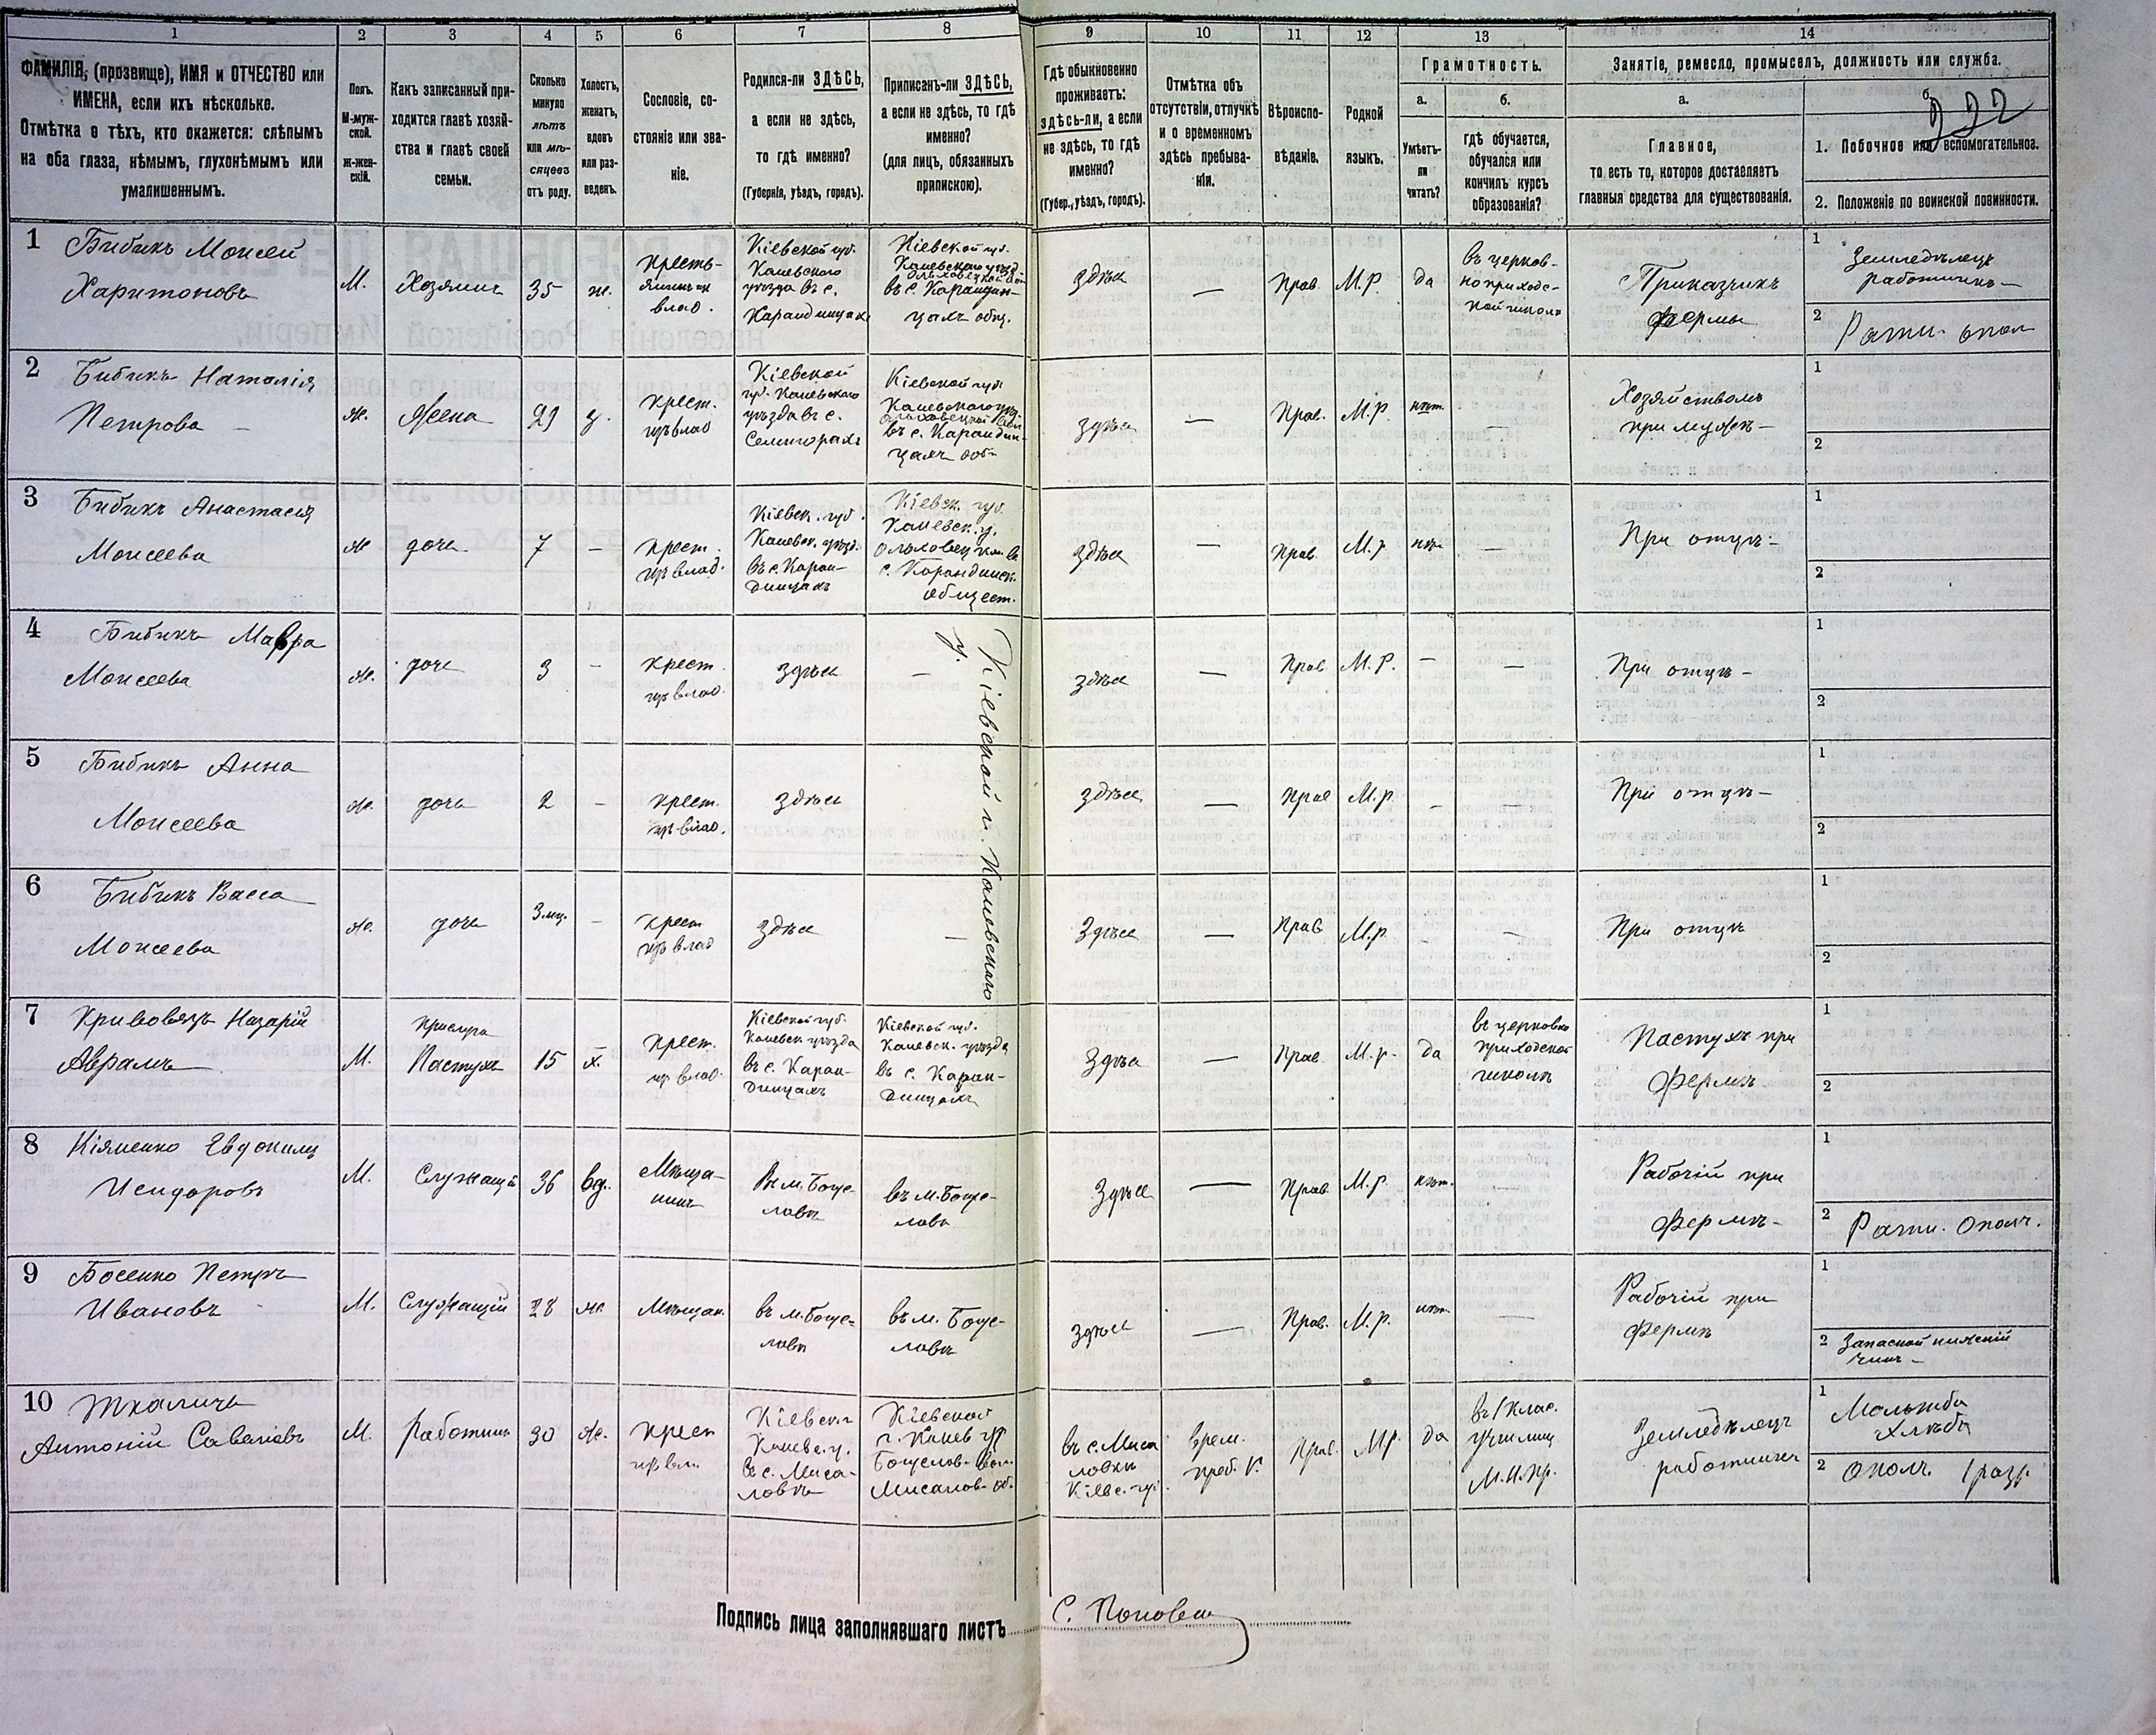 1 2 3 4 5 6 7 8 9 10 11 12 13 14
ФАМИЛІЯ, (прозвище), ИМЯ и ОТЧЕСТВО или
ИМЕНА, если ихъ нѣсколько.
Отмѣтка о тѣхъ, кто окажется: слѣпымъ
на оба глаза, нѣмымъ, глухонѣмымъ или
умалишеннымъ.
Полъ.
М-муж-
ской.
ж-жен-
скій.
Какъ записанный при-
ходится главѣ хозяй-
ства и главѣ своей
семьи.
Сколько
минуло
лѣтъ
или мѣ-
сяцевъ
отъ роду.
Холостъ,
женатъ,
вдовъ
или раз-
веденъ.
Сословіе, со-
стояніе или зва-
ніе.
Родился-ли ЗДѢСЬ,
а если не здѣсь,
то гдѣ именно?
(Губернія, уѣздъ, городъ).
Приписанъ-ли ЗДѢСЬ,
а если не здѣсь, то гдѣ
именно?
(для лицъ, обязанныхъ
припискою).
Гдѣ обыкновенно
проживаетъ:
здѣсь-ли, а если
не здѣсь, то гдѣ
именно?
(Губер., уѣздъ, городъ).
Отмѣтка объ
отсутствіи, отлучкѣ
и о временномъ
здѣсь пребыва-
ніи.
Вѣроиспо-
вѣданіе.
Родной
языкъ.
Грамотность.
а.
Умѣетъ-
ли
читать?
б.
гдѣ обучается,
обучался или
кончилъ курсъ
образованія?
Занятіе, ремесло, промыселъ, должность или служба.
а.
Главное,
то есть то, которое доставляетъ
главныя средства для существованія.
б.
1. Побочное или вспомогательное.
2. Положеніе по воинской повинности.
1 Бибикъ Моисей
Харитоновъ
М.
Хозяинъ
35
ж.
Кресть-
влад.
Кіевской губ.
Каневскаго
уѣзда въ с.
Карандинцахъ
Кіевской губ.
Каневскаго уѣзд
въ с. Карандин-
цахъ общ.
здѣсь
—
Прав.
М.Р.
да
въ церков-
ноприходс-
кой школѣ
Приказчикъ
фермы
1 Земледѣлецъ
работникъ
2 Ратн. опол
2 Бибикъ Наталія
Петрова
ж.
Жена
29
з.
Крест.
Кіевской
губ. Каневскаго
уѣзда въ с.
Семигорахъ
Кіевской губ.
Каневскаго уѣз.
въ с. Карандин-
цахъ об.
здѣсь
—
Прав.
М.Р.
нѣт.
—
Хозяйствомъ
при мужѣ
1
2
3 Бибикъ Анастасія
Моисеева
ж
дочь
7
—
Крест.
Кіевск. губ.
Каневск. уѣзд.
въ с. Каран-
динцахъ
Кіевск. губ.
Каневск. у.
с. Карандинск.
общест.
здѣсь
—
Прав.
М.р
нѣт
—
При отцѣ
1
2
4 Бибикъ Мавра
Моисеева
ж.
дочь
3
—
Крест.
здѣсь
—
Кіевской г. Каневскаго
у.
здѣсь
—
Прав.
М.Р.
—
—
При отцѣ
1
2
5 Бибикъ Анна
Моисеева
ж.
дочь
2
—
Крест.
здѣсь
здѣсь
—
Прав
М.р.
—
—
При отцѣ
1
2
6 Бибикъ Васса
Моисеева
ж.
дочь
3 мц.
—
Крест
здѣсь
—
Здѣсь
—
Прав
М.р
—
При отцѣ
1
2
7 Кривовязъ Назарій
Аврамъ
М.
Прислуга
Пастухъ
15
х.
Крест.
Кіевской губ.
Каневск уѣзда
въ с. Каран-
динцахъ
Кіевской губ.
Каневск. уѣзда
въ с. Каран-
динцахъ
Здѣсь
—
Прав.
М.р.
да
въ церковно
приходской
школѣ
Пастухъ при
фермѣ
1
2
8 Кіяненко Евдокимъ
Исидоровъ
М.
Служащій
36
вд.
Мѣща-
нинъ
Въ м. Богус-
лавѣ
въ м. Богус-
лавѣ
Здѣсь
—
Прав.
М.р.
нѣт.
—
Рабочій при
фермѣ
1
2 Ратн. Ополч.
9 Босенко Петръ
Ивановъ
М.
Служащій
28
ж.
Мѣщан.
въ м. Богус-
лавѣ
въ м. Богус-
лавѣ
здѣсь
—
Прав.
М.Р.
нѣт.
—
Рабочій при
фермѣ
1
2 Запасной нижній
чинъ
10 Ткаличъ
Антоній Савеліевъ
М.
Работник
30
ж.
Крест
Кіевск. г.
Каневс. у.
въ с. Миса-
ловкѣ
Кіевской
г. Канев ур
Богуслов. вол.
Мисалов. об.
въ с. Миса
ловкѣ
Кіевс. гу.
врем.
преб.
Прав.
М.р.
да
въ 1 клас.
училищ
М.Н.Пр.
Земледѣлецъ
работникъ
1 Мольтба
хлѣба
2 Ополч. 1 разр.
Подпись лица заполнявшаго листъ